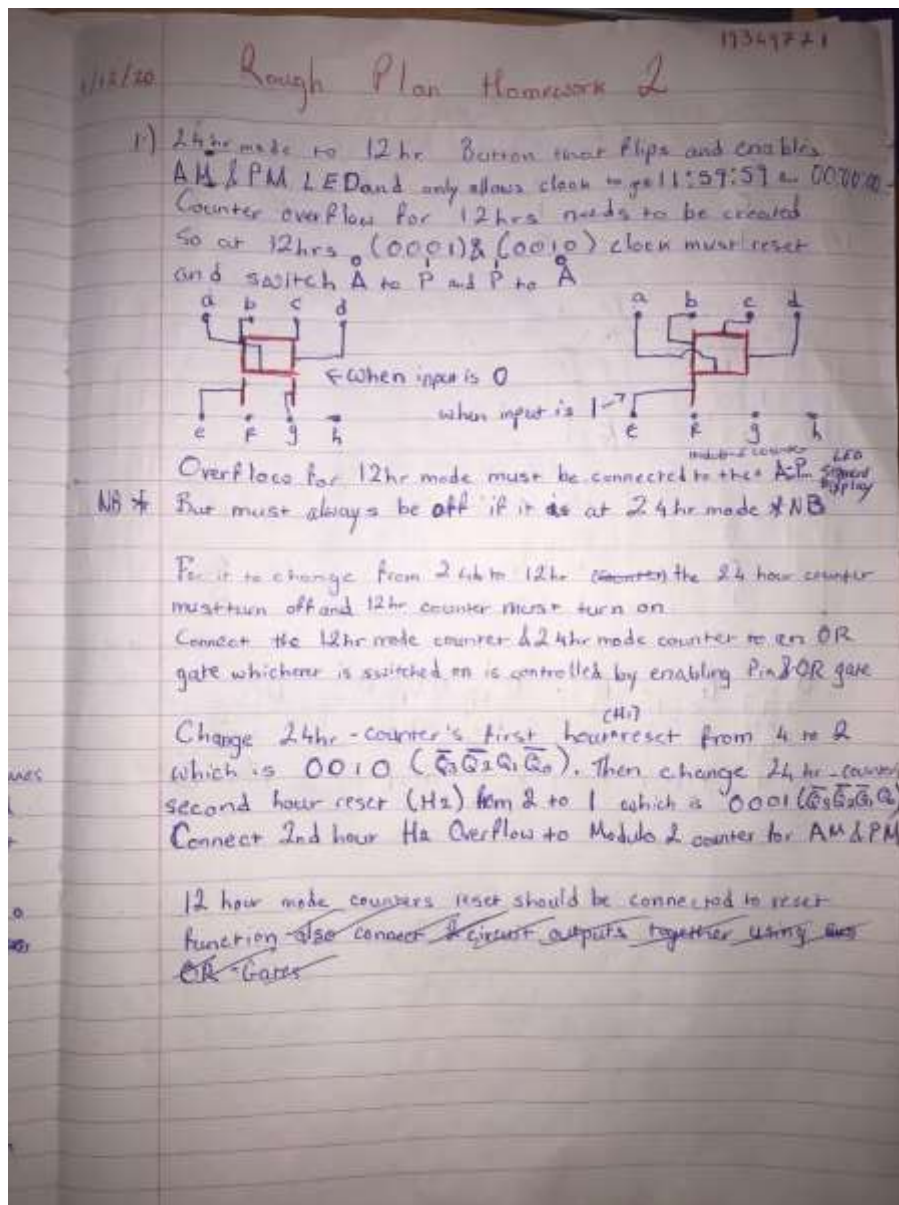 19349771
1/12/20 Rough Plan Homework 2
1.) 24hr mode to 12hr Button that flips and enables
AM & PM LED and only allows clock to go 11:59:59 00:00:00
Counter overflow for 12hrs needs to be created
So at 12hrs (0001) & (0010) clock must reset
0 1 1 0
and switch A to P and P to A
a b c d a b c d
← When input is 0
when input is 1 →
e f g h e f g h
modulo 2 counter LED
Overflow for 12hr mode must be connected to the A-P Segment
Display
NB * But must always be off if it is at 24hr mode * NB
For it to change from 24h to 12hr (counter) the 24 hour counter
must turn off and 12hr counter must turn on
Connect the 12hr mode counter & 24hr mode counter to an OR
gate whichever is switched on is controlled by enabling Pin & OR gate
(H1)
Change 24hr - counter's first hour reset from 4 to 2
which is 0010 (Q̅3Q̅2Q1Q̅0). Then change 24hr - counter
second hour reset (H2) from 2 to 1 which is 0001 (Q̅3Q̅2Q̅1Q0)
Connect 2nd hour H2 Overflow to Modulo 2 counter for AM & PM
12 hour mode counters reset should be connected to reset
function also connect 2 circuit outputs together using
OR - Gates